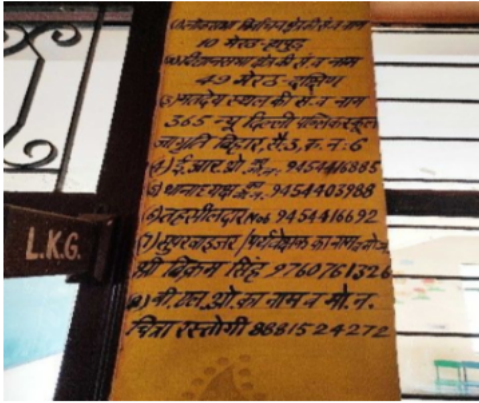 (1) लोकसभा निर्वाचन क्षेत्र की सं. व नाम
10 मेरठ-हापुड़
(2) विधानसभा क्षेत्र की सं. व नाम
49 मेरठ-दक्षिण
(3) मतदेय स्थल की सं. व नाम
365 न्यू दिल्ली पब्लिक स्कूल
जागृति विहार, सै. 3, क. न. : 6
(4) ई. आर. ओ. मो. न. : 9454416885
(5) थानाध्यक्ष न. 9454403988
(6) तहसीलदार No. 9454416692
(7) सुपरवाइजर / पर्यवेक्षक का नाम व मो. न.
श्री विक्रम सिंह 9760761326
(8) बी. एल. ओ. का नाम व मो. न.
चित्रा रस्तोगी 8881524272
L.K.G.